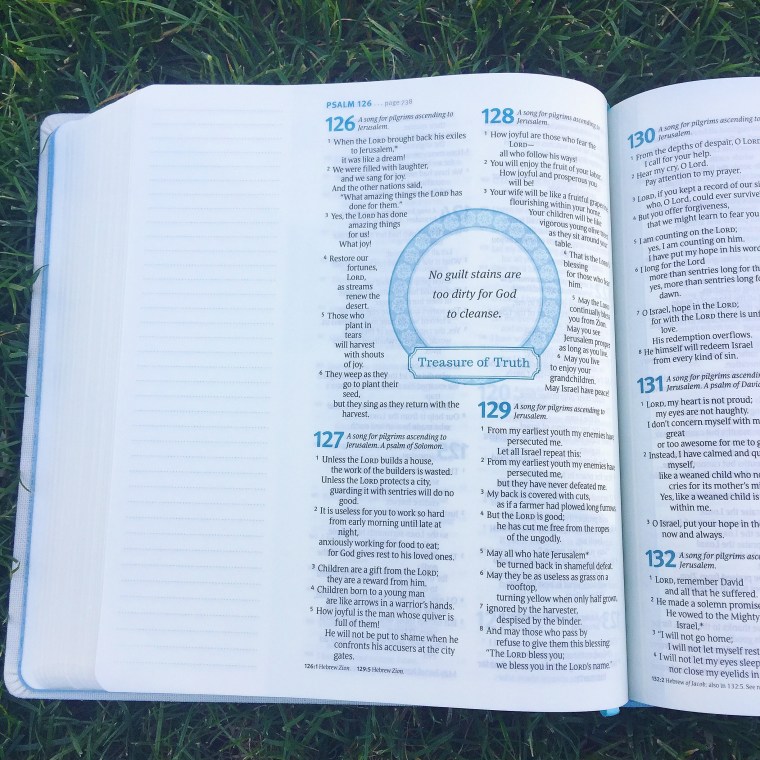 PSALM 126 . . . page 738
126 A song for pilgrims ascending to
Jerusalem.
1 When the LORD brought back his exiles
to Jerusalem,*
it was like a dream!
2 We were filled with laughter,
and we sang for joy.
And the other nations said,
"What amazing things the LORD has
done for them."
3 Yes, the LORD has done
amazing things
for us!
What joy!
4 Restore our
fortunes,
LORD,
as streams
renew the
desert.
5 Those who
plant in
tears
will harvest
with shouts
of joy.
6 They weep as they
go to plant their
seed,
but they sing as they return with the
harvest.
127 A song for pilgrims ascending to
Jerusalem. A psalm of Solomon.
1 Unless the LORD builds a house,
the work of the builders is wasted.
Unless the LORD protects a city,
guarding it with sentries will do no
good.
2 It is useless for you to work so hard
from early morning until late at
night,
anxiously working for food to eat;
for God gives rest to his loved ones.
3 Children are a gift from the LORD;
they are a reward from him.
4 Children born to a young man
are like arrows in a warrior's hands.
5 How joyful is the man whose quiver is
full of them!
He will not be put to shame when he
confronts his accusers at the city
gates.
126:1 Hebrew Zion. 129:5 Hebrew Zion.
No guilt stains are
too dirty for God
to cleanse.
Treasure of Truth
128 A song for pilgrims ascending to
Jerusalem.
1 How joyful are those who fear the
LORD—
all who follow his ways!
2 You will enjoy the fruit of your labor.
How joyful and prosperous you
will be!
3 Your wife will be like a fruitful grapevine,
flourishing within your home.
Your children will be like
vigorous young olive trees
as they sit around your
table.
4 That is the LORD's
blessing
for those who fear
him.
5 May the LORD
continually bless
you from Zion.
May you see
Jerusalem prosper
as long as you live.
6 May you live
to enjoy your
grandchildren.
May Israel have peace!
129 A song for pilgrims ascending to
Jerusalem.
1 From my earliest youth my enemies have
persecuted me.
Let all Israel repeat this:
2 From my earliest youth my enemies have
persecuted me,
but they have never defeated me.
3 My back is covered with cuts,
as if a farmer had plowed long furrows.
4 But the LORD is good;
he has cut me free from the ropes
of the ungodly.
5 May all who hate Jerusalem*
be turned back in shameful defeat.
6 May they be as useless as grass on a
rooftop,
turning yellow when only half grown,
7 ignored by the harvester,
despised by the binder.
8 And may those who pass by
refuse to give them this blessing:
"The LORD bless you;
we bless you in the LORD's name."
130 A song for pilgrims ascending to
Jerusalem.
1 From the depths of despair, O LORD,
I call for your help.
2 Hear my cry, O Lord.
Pay attention to my prayer.
3 LORD, if you kept a record of our
who, O Lord, could ever survive
4 But you offer forgiveness,
that we might learn to fear you
5 I am counting on the LORD;
yes, I am counting on him.
I have put my hope in his word
6 I long for the Lord
more than sentries long for the
yes, more than sentries long for
dawn.
7 O Israel, hope in the LORD;
for with the LORD there is
love.
His redemption overflows.
8 He himself will redeem Israel
from every kind of sin.
131 A song for pilgrims ascending
Jerusalem. A psalm of David
1 LORD, my heart is not proud;
my eyes are not haughty.
I don't concern myself with
great
or too awesome for me to
2 Instead, I have calmed and
myself,
like a weaned child who no
cries for its mother's
Yes, like a weaned child is
within me.
3 O Israel, put your hope in the
now and always.
132 A song for pilgrims
Jerusalem.
1 LORD, remember David
and all that he suffered.
2 He made a solemn promise
He vowed to the Mighty
Israel,*
3 "I will not go home;
I will not let myself rest
4 I will not let my eyes sleep
nor close my eyelids in
132:2 Hebrew of Jacob; also in 132:5. See